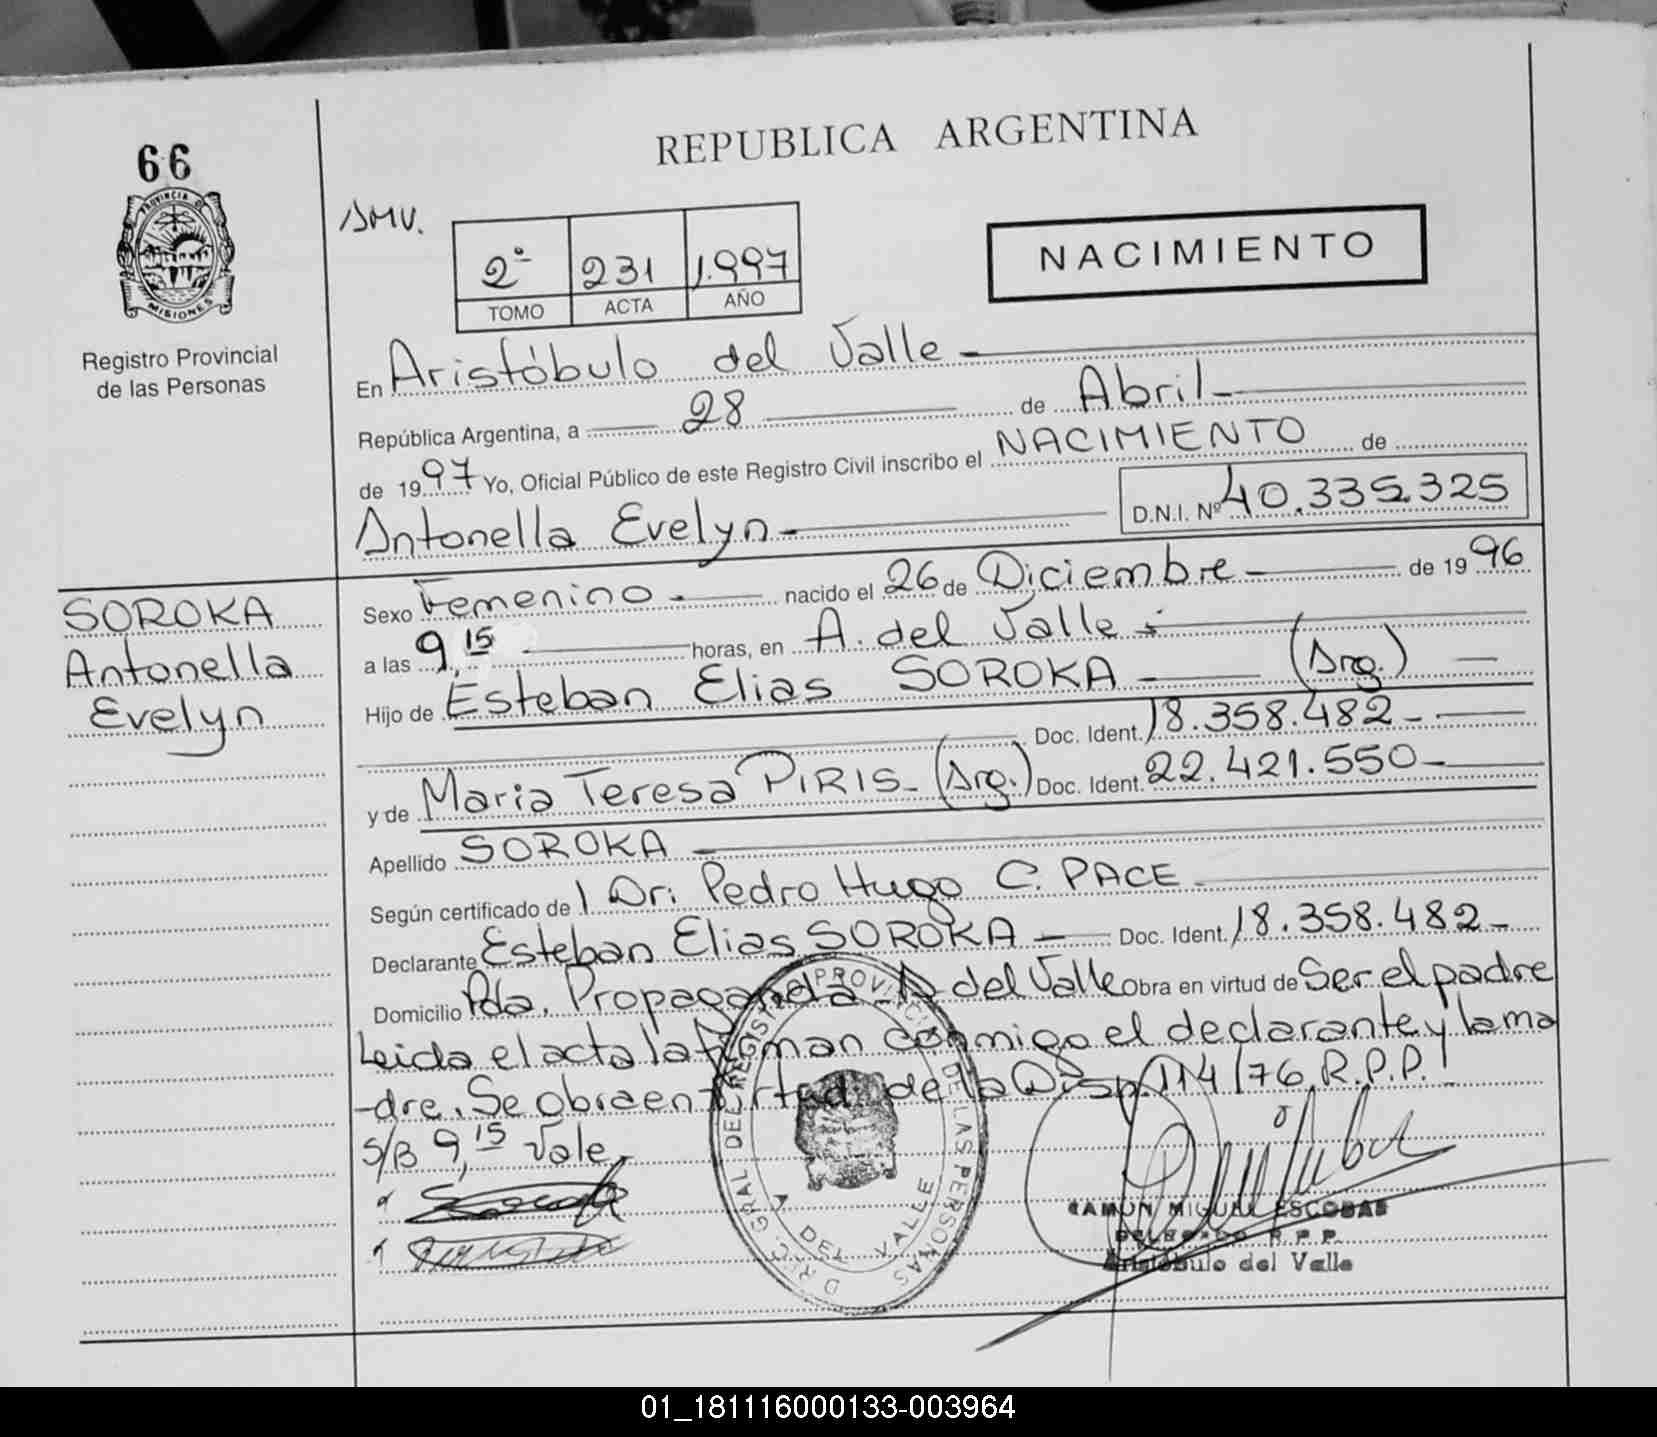 66
PROVINCIA DE
MISIONES
Registro Provincial
de las Personas
REPUBLICA ARGENTINA
2º 231 1.997
TOMO ACTA AÑO
NACIMIENTO
En Aristóbulo del Valle
República Argentina, a 28 de Abril
de 1997 Yo, Oficial Público de este Registro Civil inscribo el NACIMIENTO de
Antonella Evelyn D.N.I. Nº 40.335.325
SOROKA
Antonella
Evelyn
Sexo Femenino nacido el 26 de Diciembre de 1996
a las 9,15 horas, en A. del Valle
Hijo de Esteban Elias SOROKA (Arg.)
Doc. Ident. 18.358.482
y de Maria Teresa PIRIS (Arg.) Doc. Ident. 22.421.550
Apellido SOROKA
Según certificado de l Dr: Pedro Hugo C. PACE
Declarante Esteban Elias SOROKA Doc. Ident. 18.358.482
Domicilio Pda. Propaganda A del Valle Obra en virtud de Ser el padre
Leida el acta la firman conmigo el declarante y la ma
-dre. Se obra en virtud de la Disp. 114/76 R.P.P.
S/B 9,15 Vale
DIREC. GRAL DEL REGISTRO PROVINCIAL DE LAS PERSONAS
A DEL VALLE
RAMON MIGUEL ESCOBAR
DELEGADO R.P.P.
Aristóbulo del Valle
01_181116000133-003964